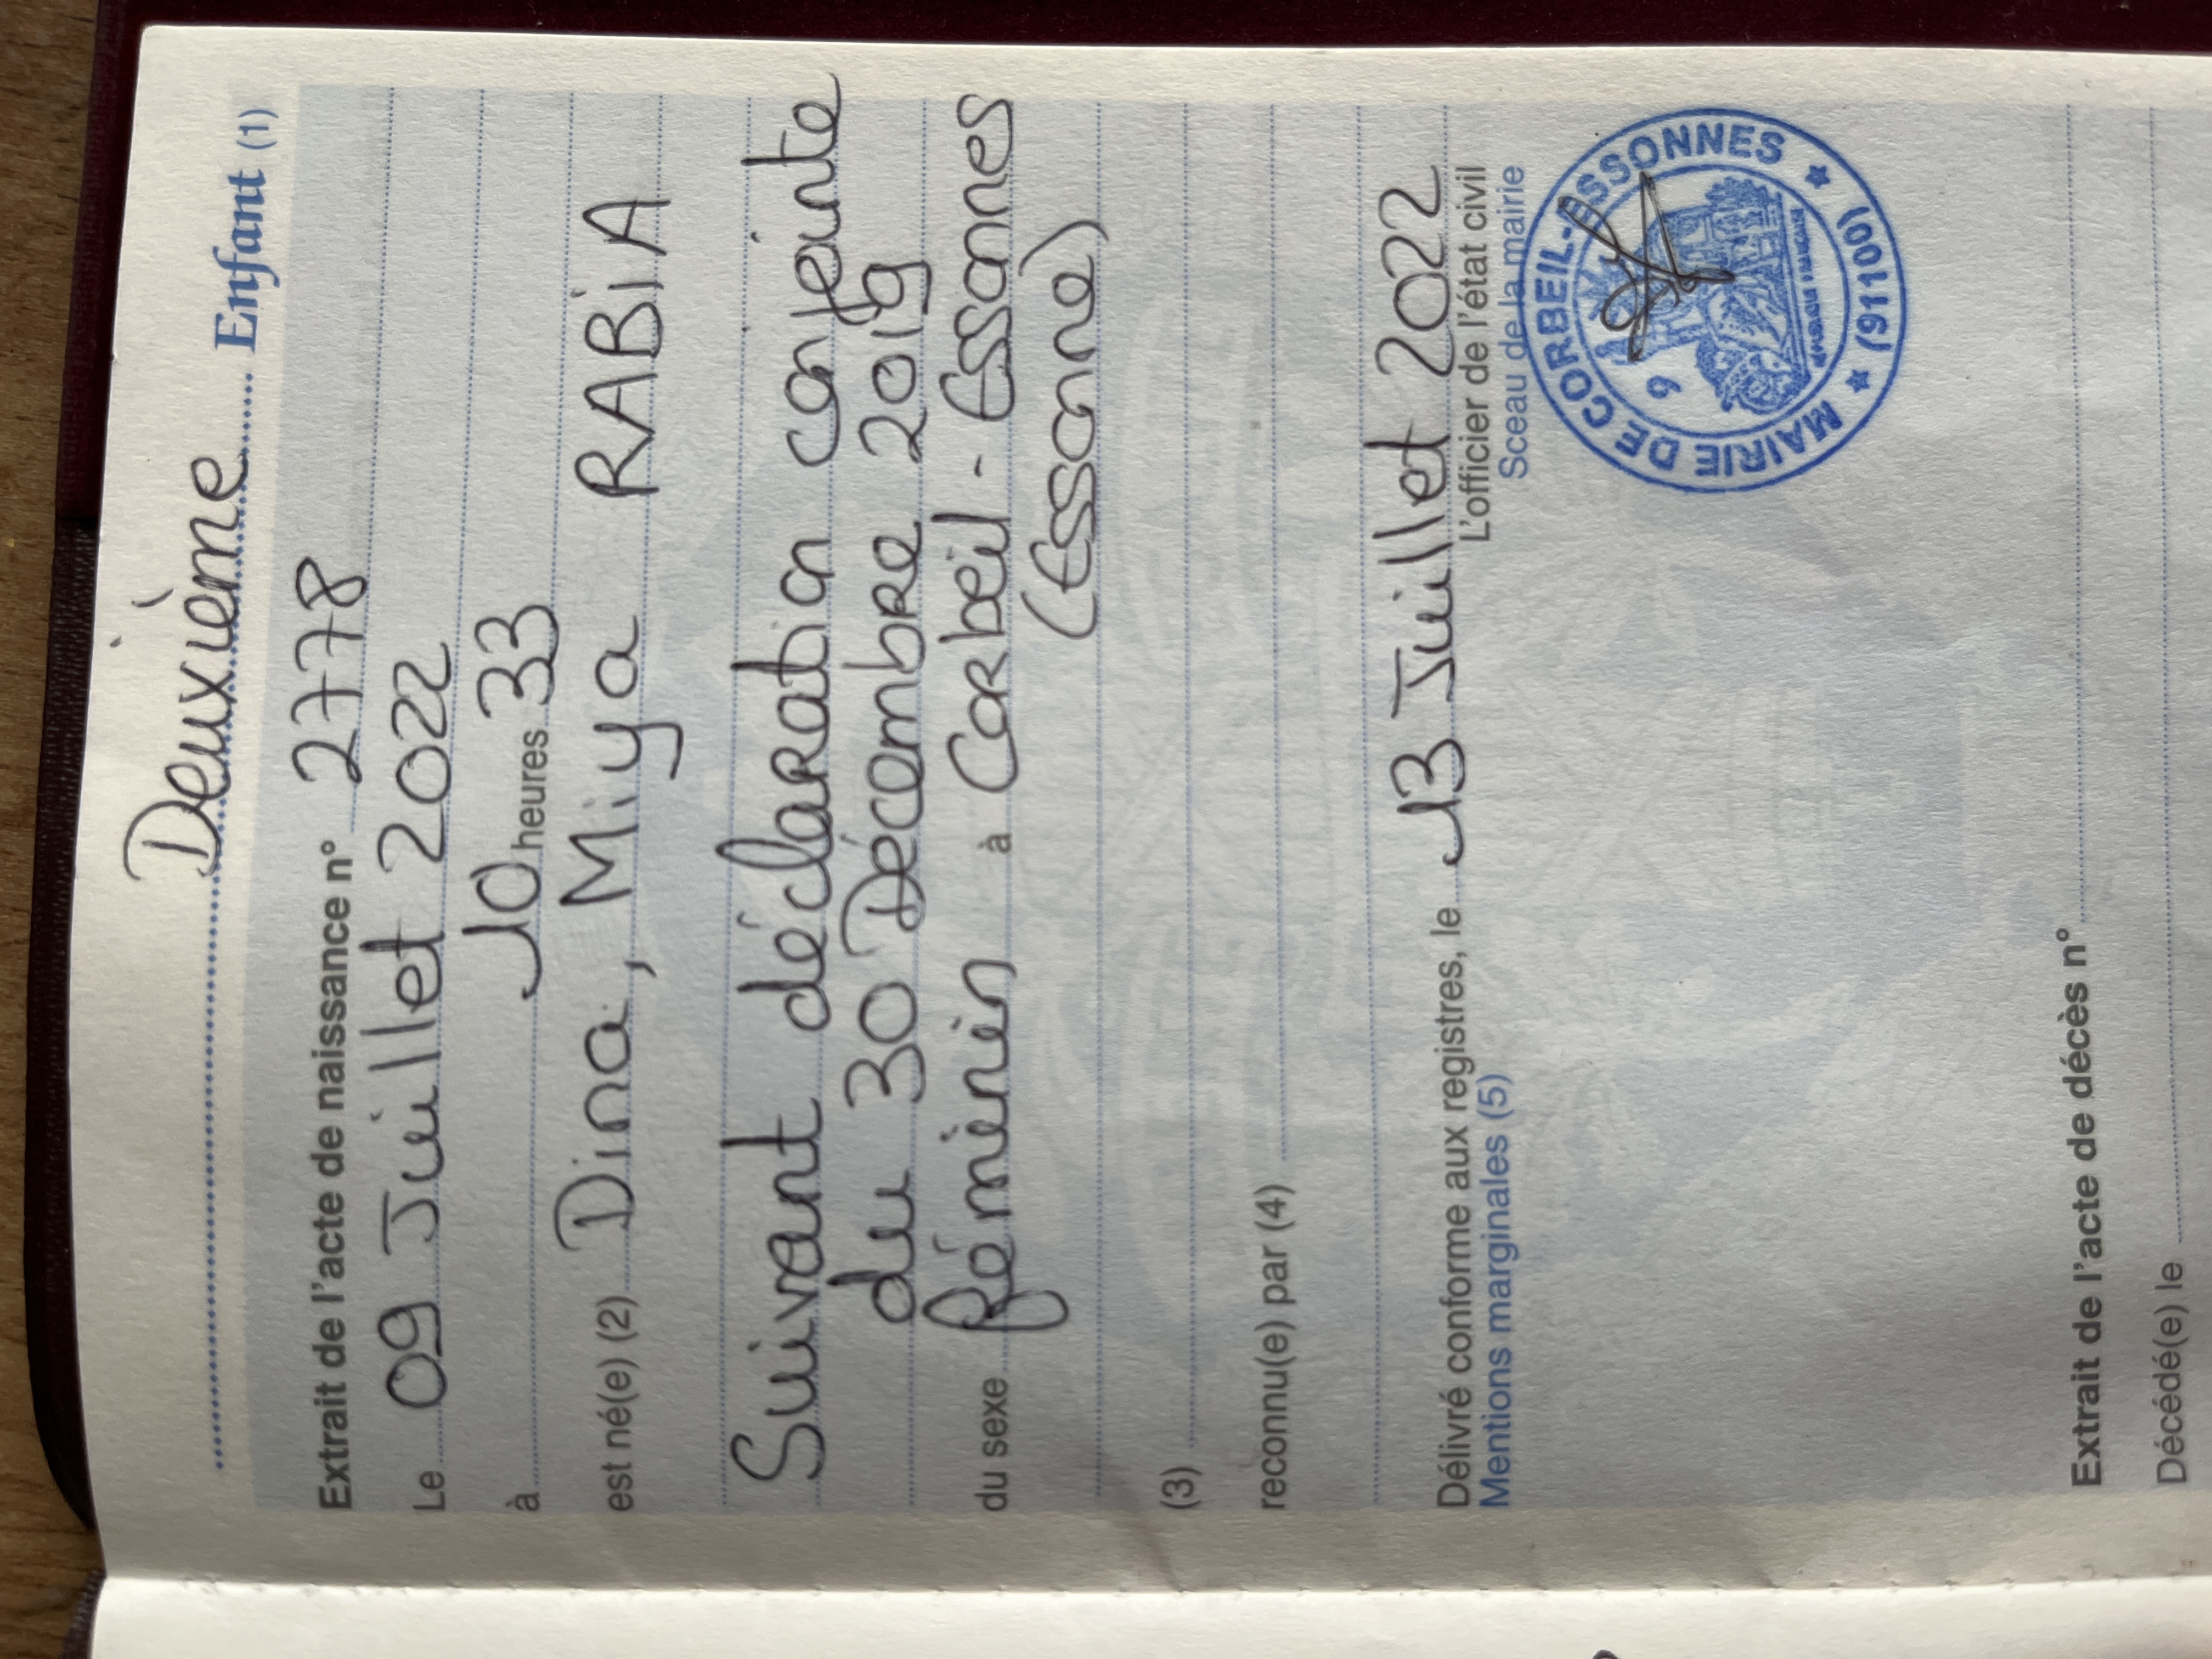 Deuxième Enfant (1)
Extrait de l'acte de naissance n° 2778
Le 09 Juillet 2022
à 10 heures 33
est né(e) (2) Dina, Miya RABiA
Suivant déclaration conjointe
du 30 Décembre 2019
du sexe féminin à Corbeil-Essonnes
(Essonne)
(3)
reconnu(e) par (4)
Délivré conforme aux registres, le 13 Juillet 2022
Mentions marginales (5) L'officier de l'état civil
Sceau de la mairie
MAIRIE DE CORBEIL-ESSONNES
9
(91100)
Extrait de l'acte de décès n°
Décédé(e) le